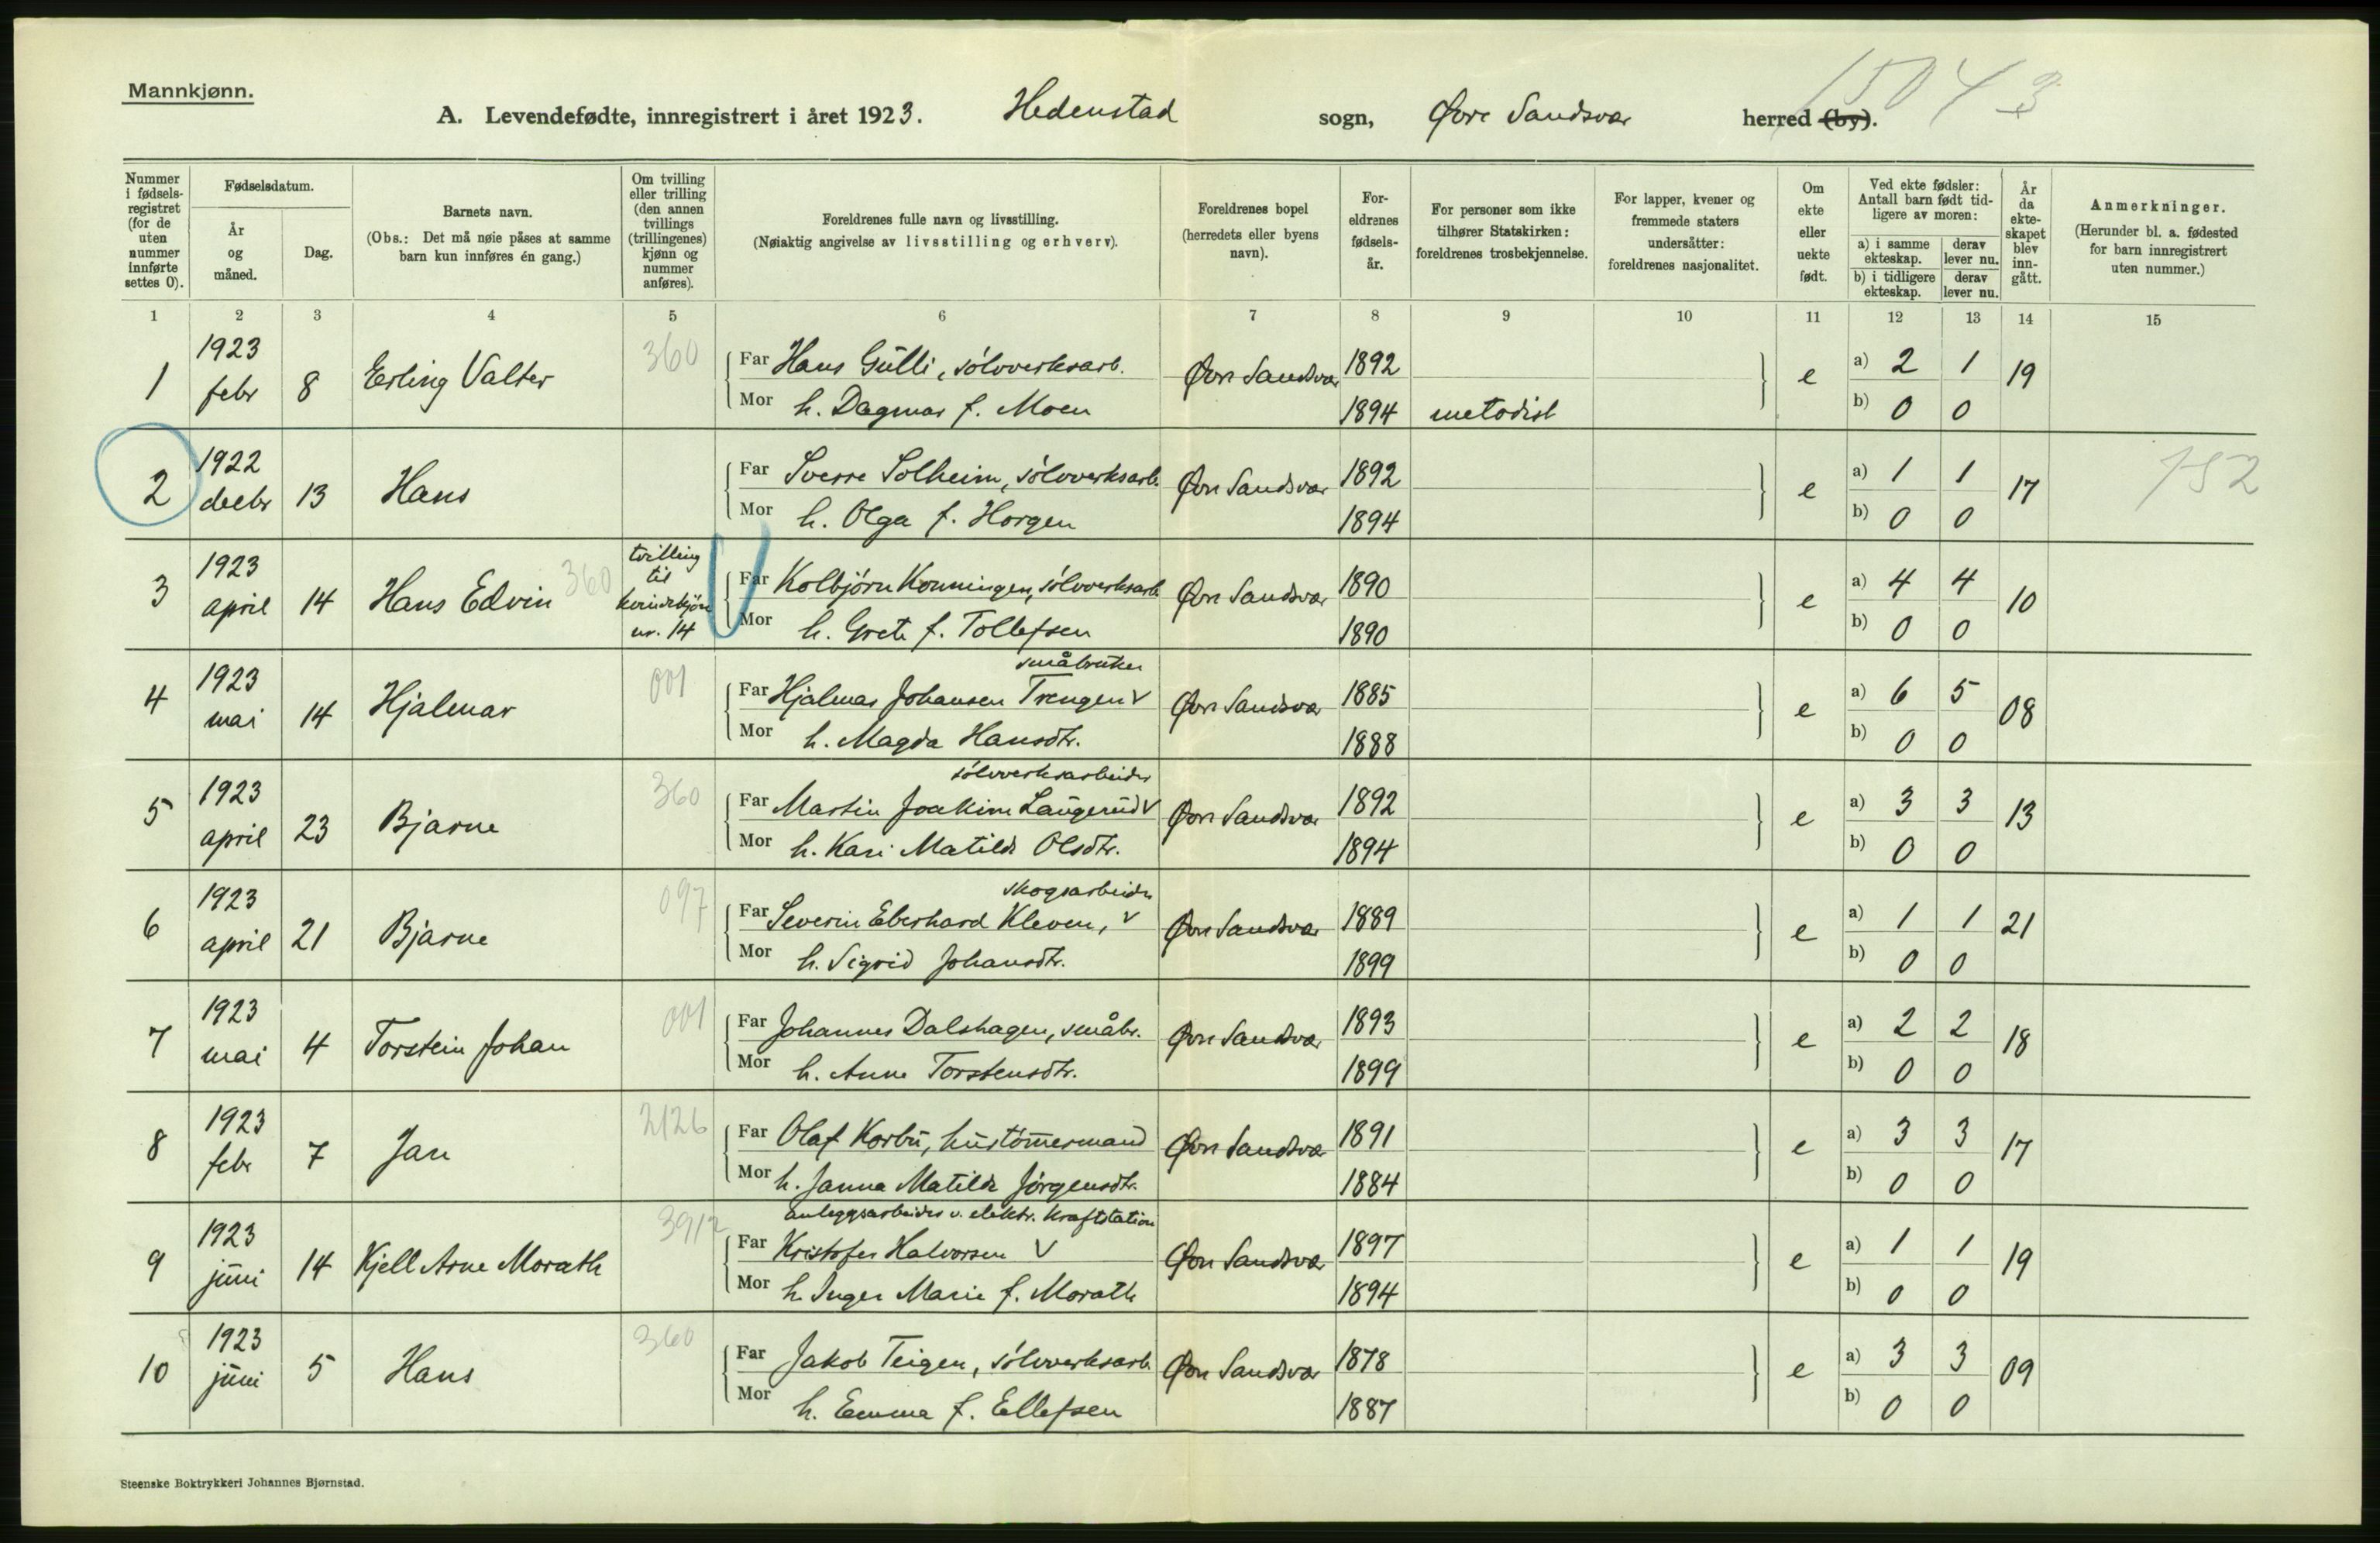 Mannkjønn.
A. Levendefødte, innregistrert i året 1923. Hedenstad sogn, Øvre Sandsvær herred (by).
15043
Nummer i fødselsregistret (for de uten nummer innførte settes 0).
Fødselsdatum.
År og måned.
Dag.
Barnets navn.
(Obs.: Det må nøie påses at samme barn kun innføres én gang.)
Om tvilling eller trilling (den annen tvillings (trillingenes) kjønn og nummer anføres).
Foreldrenes fulle navn og livsstilling.
(Nøiaktig angivelse av livsstilling og erhverv).
Foreldrenes bopel (herredets eller byens navn).
Foreldrenes fødselsår.
For personer som ikke tilhører Statskirken: foreldrenes trosbekjennelse.
For lapper, kvener og fremmede staters undersåtter: foreldrenes nasjonalitet.
Om ekte eller uekte født.
Ved ekte fødsler: Antall barn født tidligere av moren:
a) i samme ekteskap. derav lever nu.
b) i tidligere ekteskap. derav lever nu.
År da ekteskapet blev inngått.
Anmerkninger.
(Herunder bl. a. fødested for barn innregistrert uten nummer.)
1 2 3 4 5 6 7 8 9 10 11 12 13 14 15
1 1923 febr 8 Erling Valter 360 Far Hans Gulli, sølvverksarb. Øvre Sandsvær 1892 e a) 2 1 19
Mor h. Dagmar f. Moen 1894 metodist b) 0 0
2 1922 decbr 13 Hans Far Sverre Solheim, sølvverksarb. Øvre Sandsvær 1892 e a) 1 1 17 152
Mor h. Olga f. Horgen 1894 b) 0 0
3 1923 april 14 Hans Edvin 360 tvilling til kvindekjøn nr. 14 Far Kolbjørn Konningen, sølvverksarb. Øvre Sandsvær 1890 e a) 4 4 10
Mor h. Grete f. Tollefsen 1890 b) 0 0
småbruker
4 1923 mai 14 Hjalmar 001 Far Hjalmar Johansen Trengen Øvre Sandsvær 1885 e a) 6 5 08
Mor h. Magda Hansdtr. 1888 b) 0 0
sølvverksarbeider
5 1923 april 23 Bjarne 360 Far Martin Joakim Laugerud Øvre Sandsvær 1892 e a) 3 3 13
Mor h. Kari Matilde Olsdtr. 1894 b) 0 0
skogsarbeider
6 1923 april 21 Bjarne 097 Far Severin Eberhard Kleven, Øvre Sandsvær 1889 e a) 1 1 21
Mor h. Sigrid Johansdtr. 1899 b) 0 0
7 1923 mai 4 Torstein Johan 001 Far Johannes Dalshagen, småbr. Øvre Sandsvær 1893 e a) 2 2 18
Mor h. Anne Torstensdtr. 1899 b) 0 0
8 1923 febr 7 Jan 2126 Far Olaf Korbu, hustømmermand Øvre Sandsvær 1891 e a) 3 3 17
Mor h. Janna Matilde Jørgensdtr. 1884 b) 0 0
anleggsarbeider v. elektr. kraftstation
9 1923 juni 14 Kjell Arne Morath 3912 Far Kristofer Halvorsen Øvre Sandsvær 1897 e a) 1 1 19
Mor h. Inger Marie f. Morath 1894 b) 0 0
10 1923 juni 5 Hans 360 Far Jakob Teigen, sølvverksarb. Øvre Sandsvær 1878 e a) 3 3 09
Mor h. Emma f. Ellefsen 1887 b) 0 0
Steenske Boktrykkeri Johannes Bjørnstad.